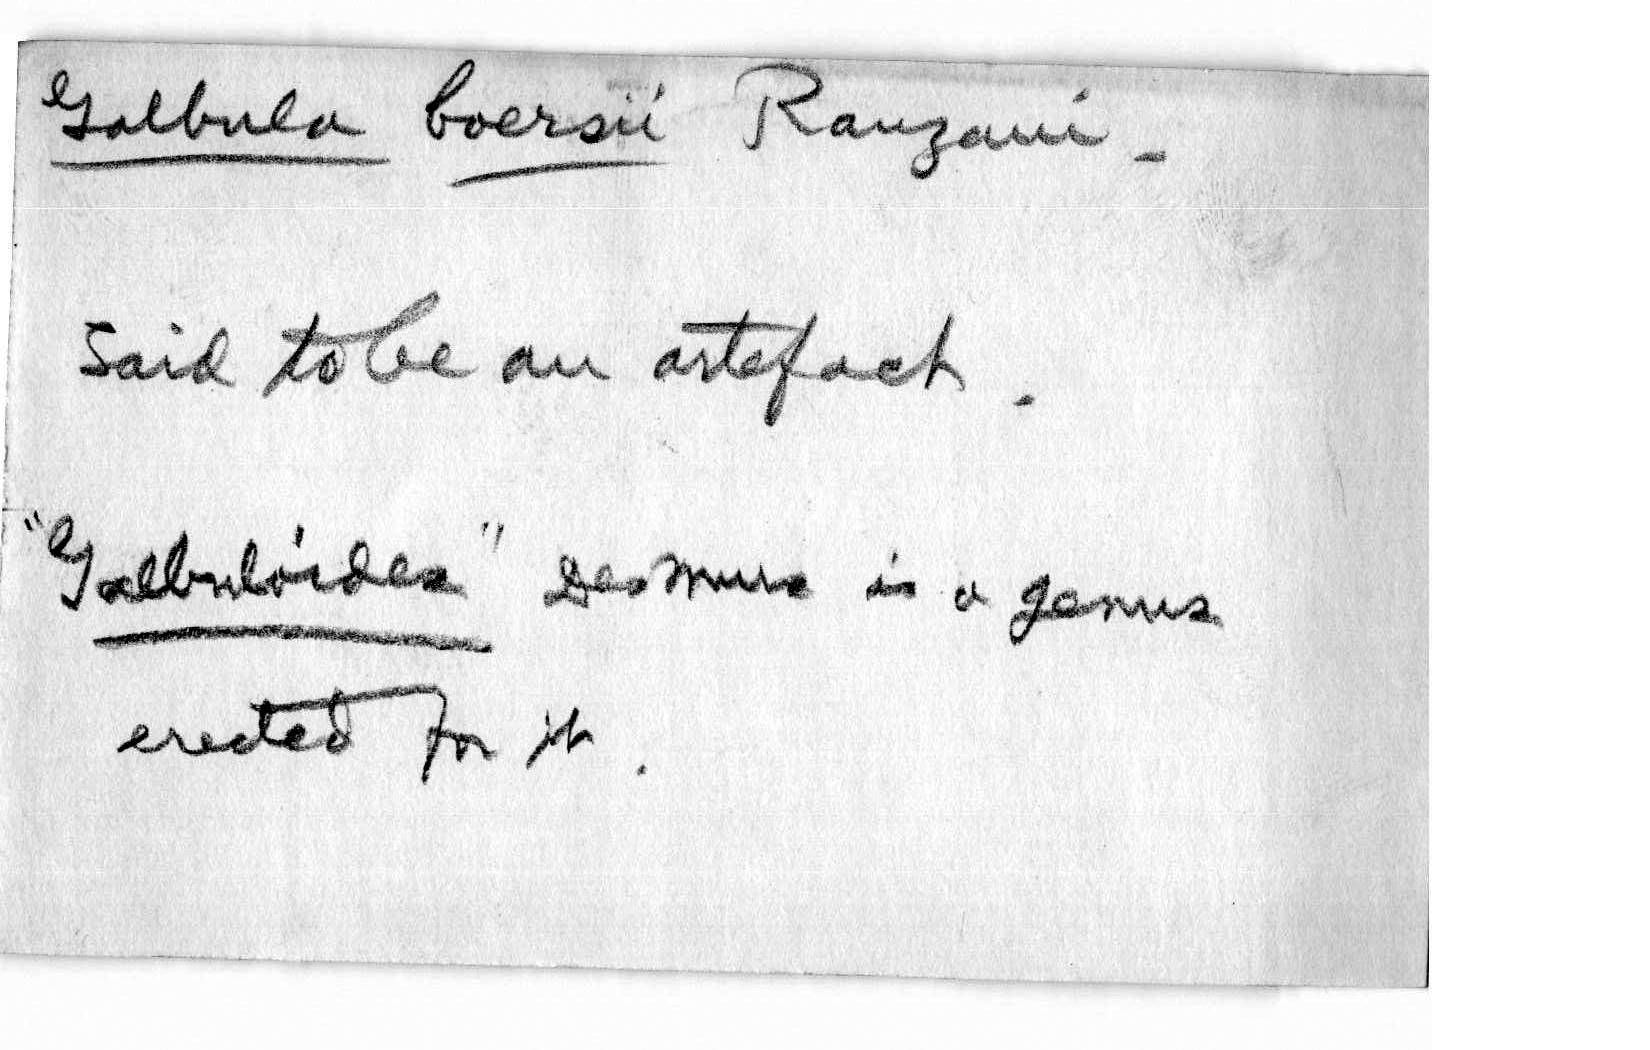 Galbula boersii Ranzani -
Said to be an artefact.
"Galbuloides" Desmurs is a genus
erected for it.